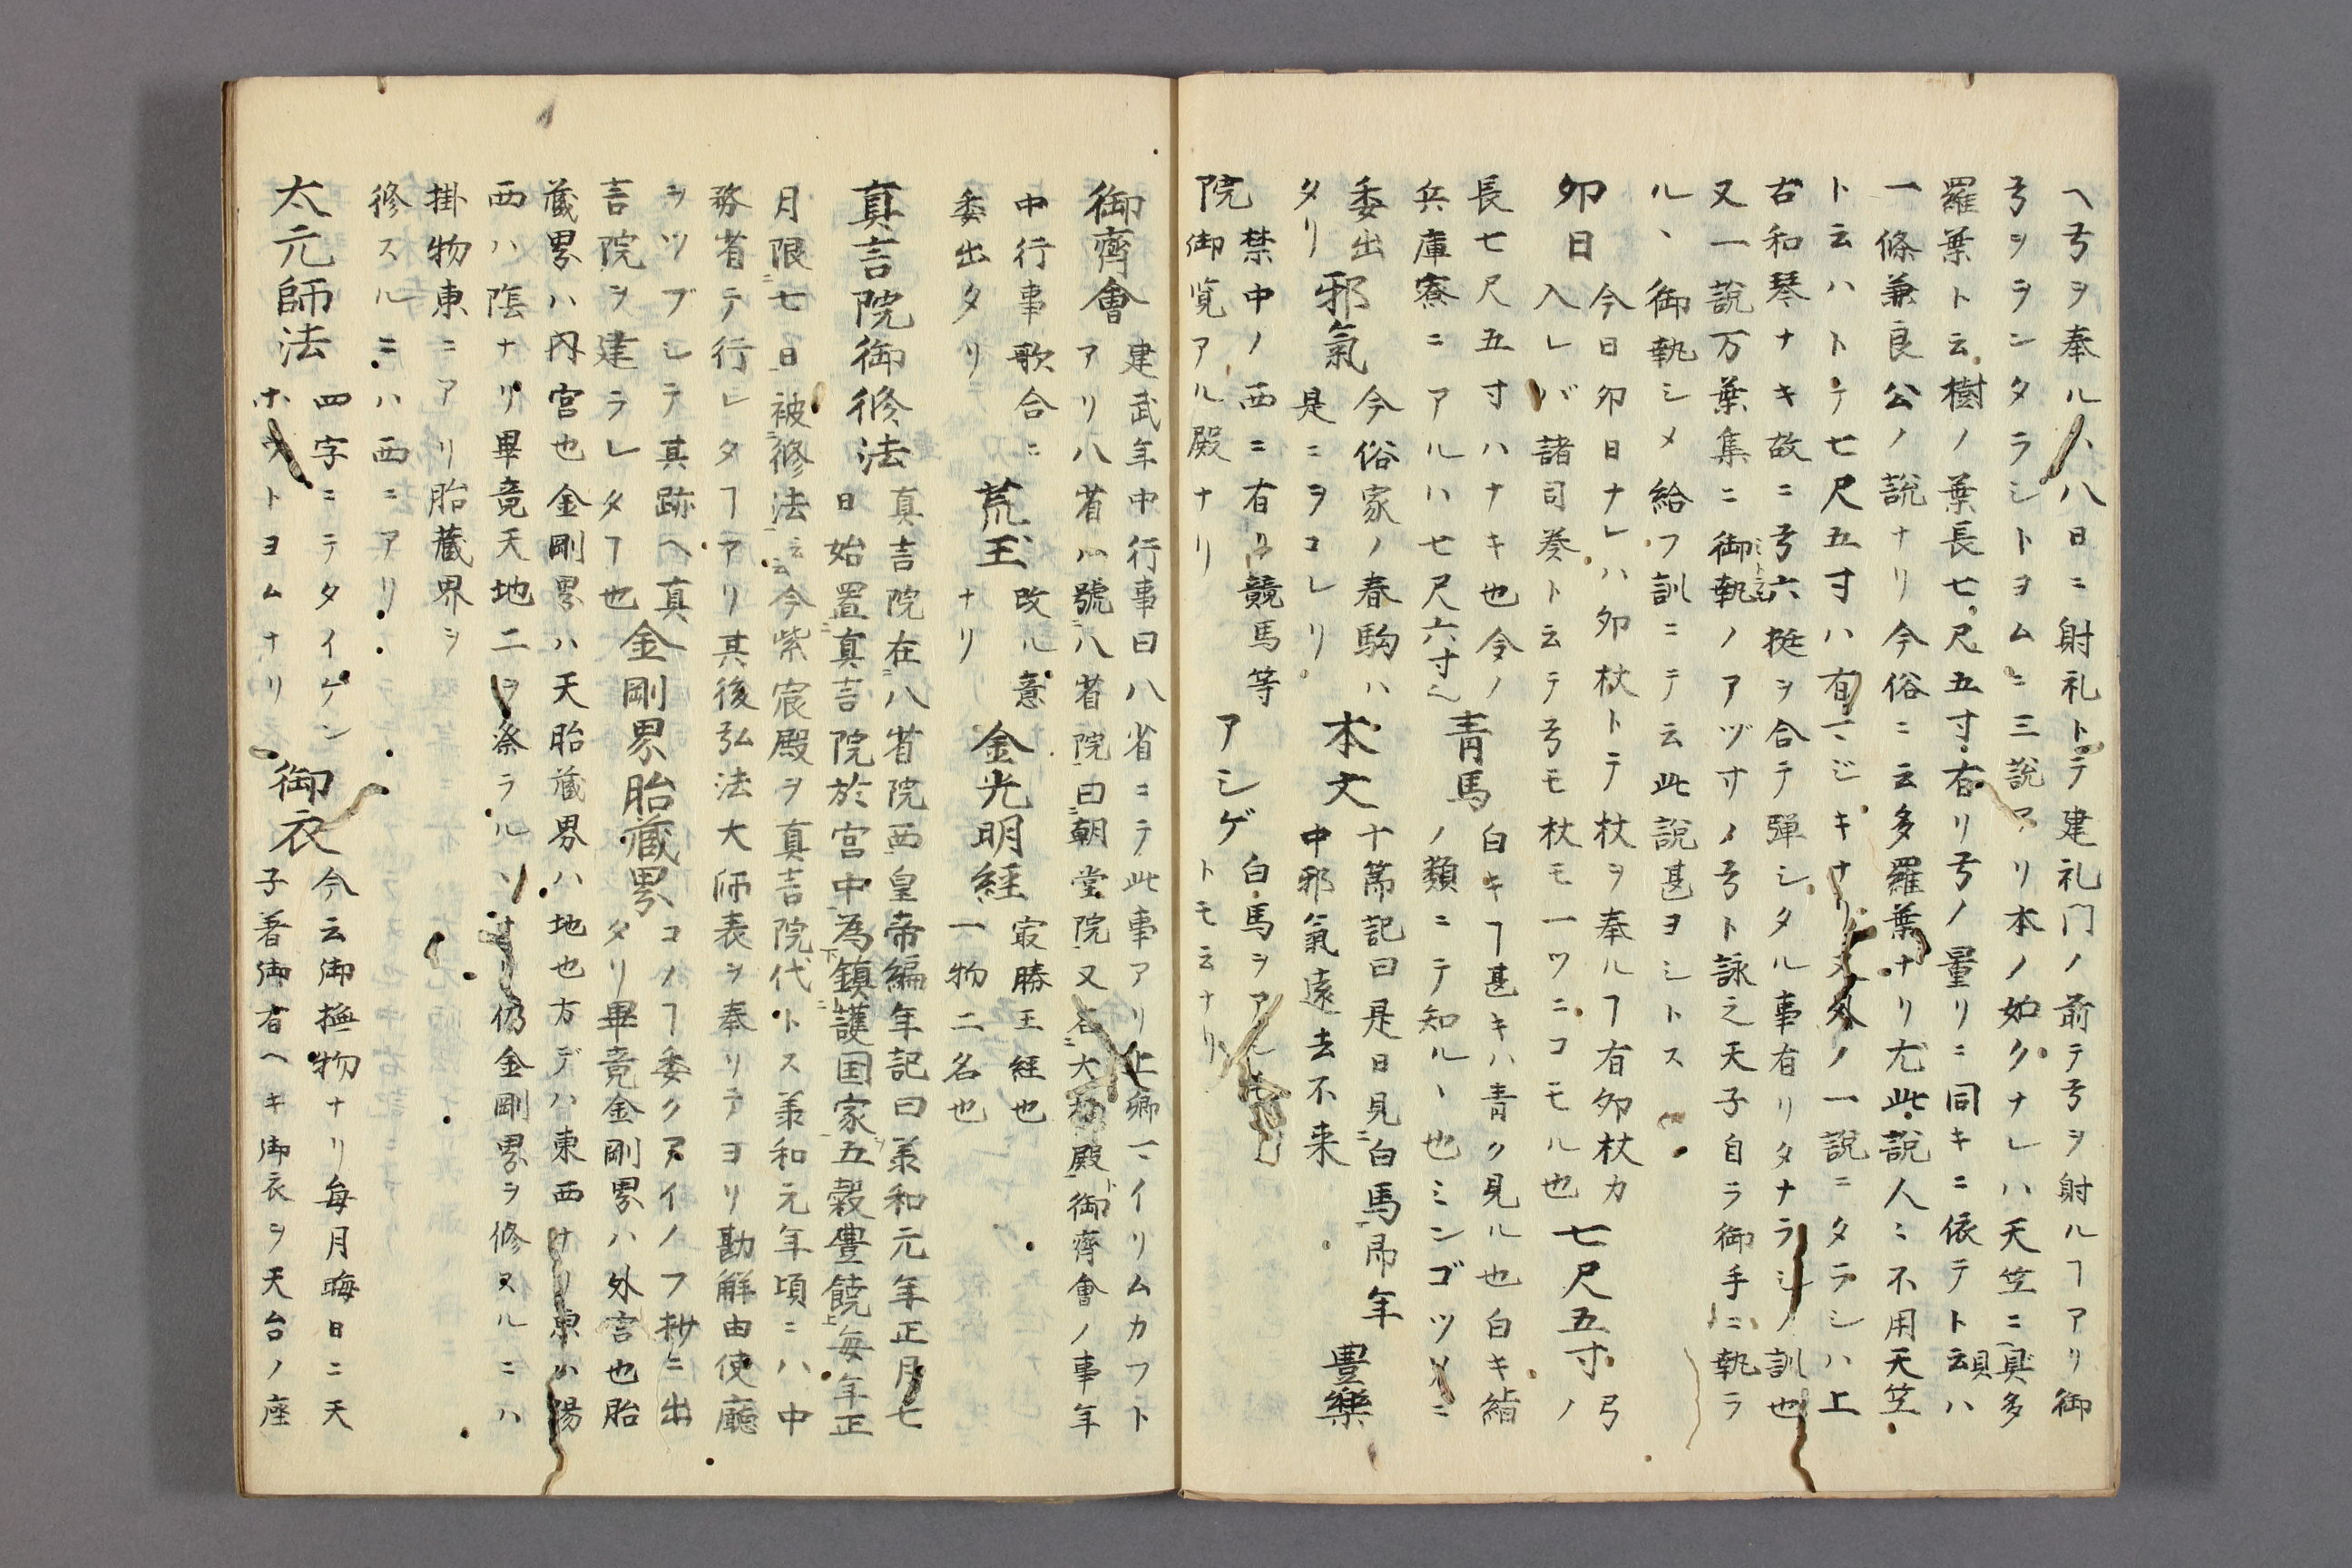 ヘ弓ヲ奉ルハ八日ニ射礼トテ建礼門ノ前テ弓ヲ射ルヿアリ御
弓ヲランタラシトヨムニ三説アリ本ノ如クナレハ天竺ニ貝多
羅葉ト云樹ノ葉長七尺五寸有リ弓ノ量リニ同キニ依テト云ハ
一條兼良公ノ説ナリ今俗ニ云多羅葉ナリ尤此説人ミ不用天竺
ト云ハトテ七尺五寸ハ有マジキナリ又外ノ一説ニタラシハ上
古和琴ナキ故ニ弓六挺ヲ合テ弾シタル事有リタナラシノ訓也
又一説万葉集ニ御執ノアヅサノ弓ト詠之天子自ラ御手ニ執ラ
ル、御執シメ給フ訓ニテ云此説甚ヨシトス
卯日 今日卯日ナレハ卯杖トテ杖ヲ奉ルヿ有卯杖カ
入レバ諸司奏ト云テ弓モ杖モ一ツニコモル也 七尺五寸 弓ノ
長七尺五寸ハナキ也今ノ
兵庫寮ニアルハ七尺六寸也 青馬 白キヿ甚キハ青ク見ル也白キ絹
ノ類ニテ知ル、也ミンゴツメニ
委出タリ 邪氣 今俗家ノ春駒ハ
是ニヲコレリ 本文 十節記曰是日見白馬即年
中邪氣遠去不来 豊樂
院 禁中ノ西ニ有リ競馬等
御覧アル殿ナリ アシゲ 白馬ヲアシモ
トモ云ナリ
御齊會 建武年中行事曰八省ニテ此事アリ上卿マイリムカフト
アリ八省ハ號八省院曰朝堂院又名大極殿御齊會ノ事年
中行事歌合ニ
委出タリ 荒玉 改ル意
ナリ 金光明経 最勝王経也
一物二名也
真言院御修法 真言院在八省院西皇帝編年記曰羕和元年正月七
日始置真言院於宮中為鎮護国家五穀豊饒毎年正
月限七日被修法云云今紫宸殿ヲ真言院代トス羕和元年頃ニハ中
務省テ行レタヿアリ其後弘法大师表ヲ奉リテヨリ勘解由使廳
ヲツブシテ其跡ヘ真
言院ヲ建ラレタヿ也 金剛界胎蔵界 コノヿ委クアイノフ抄ニ出
タリ畢竟金剛界ハ外宮也胎
蔵界ハ内宮也金剛界ハ天胎蔵界ハ地也方デハ東西ナリ東ハ陽
西ハ陰ナリ畢竟天地二ヲ祭ラル、ナリ仍金剛界ヲ修スルニハ
掛物東ニアリ胎蔵界ヲ
修スルニハ西ニアリ
太元師法 四字ニテタイゲン
ホウトヨムナリ 御衣 今云御撫物ナリ毎月晦日ニ天
子着御有ヘキ御衣ヲ天台ノ座